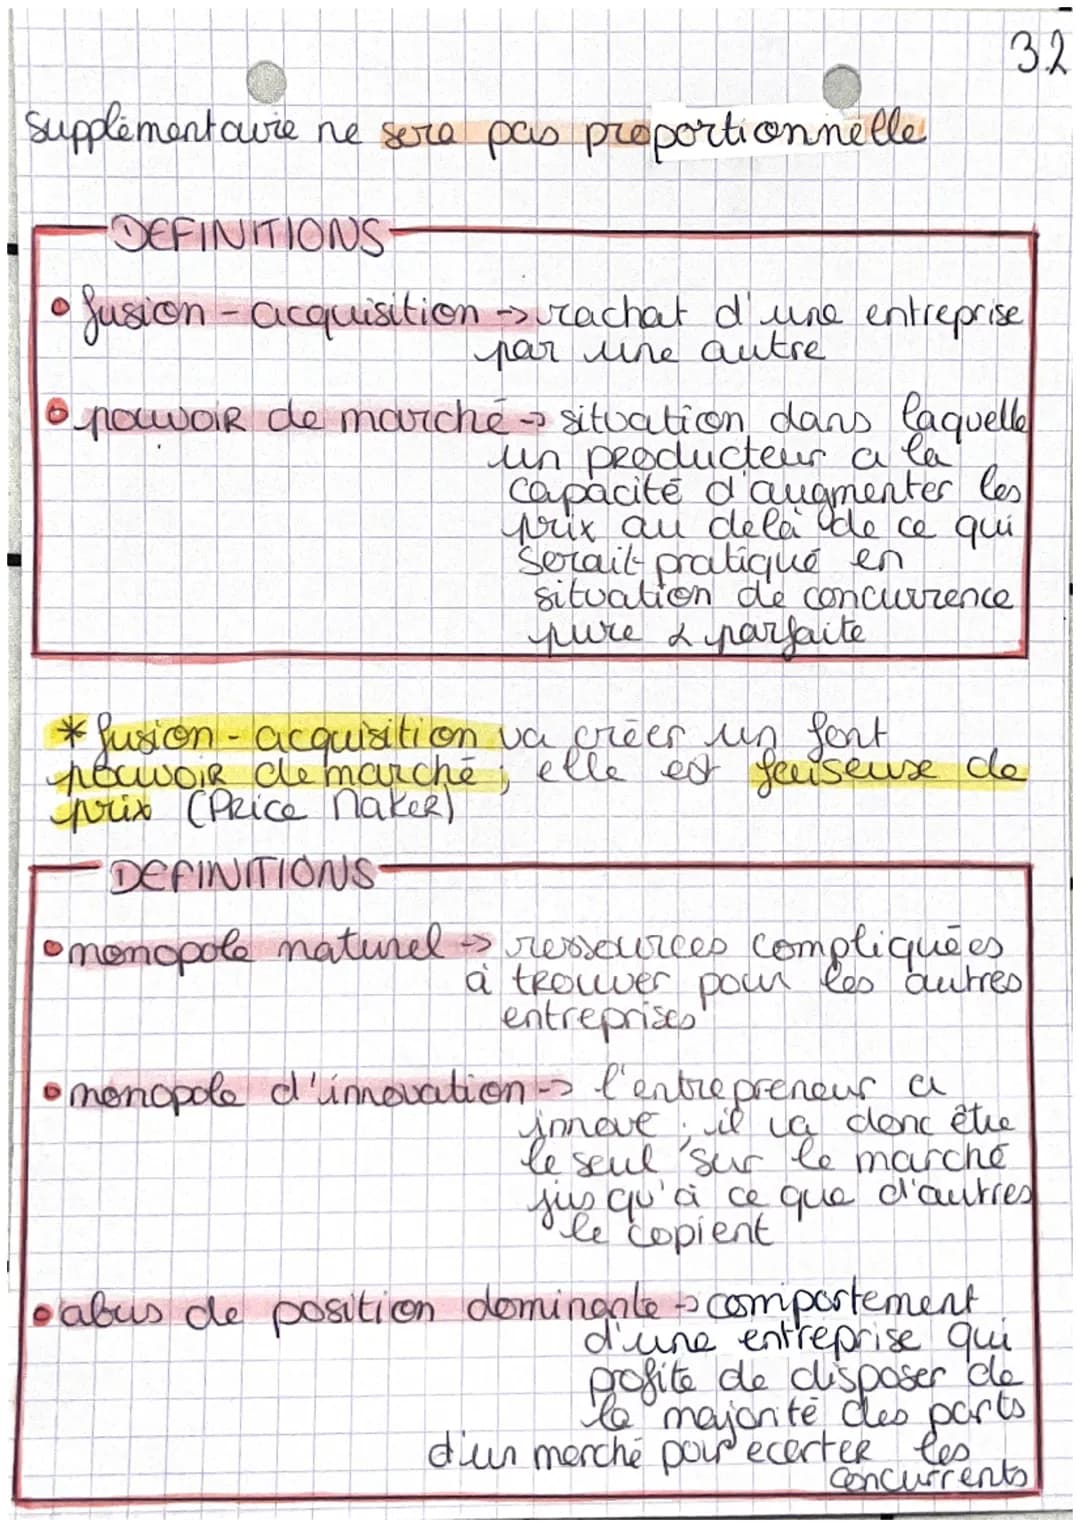 32
supplémentaire ne sera pas proportionnelle
DEFINITIONS
• fusion - acquisition -> rachat d'une entreprise
par une autre
• pouvoir de marché -> situation dans laquelle
un producteur a la
capacité d'augmenter les
prix au delà de ce qui
serait pratiqué en
situation de concurrence
pure & parfaite
* fusion - acquisition va créer un font
pouvoir de marché ; elle est faiseuse de
prix (Price Maker)
DEFINITIONS
• monopole naturel -> ressources compliquées
à trouver pour les autres
entreprises
• monopole d'innovation -> l'entrepreneur a
innové ; il va donc être
le seul sur le marché
jusqu'à ce que d'autres
le copient
• abus de position dominante -> comportement
d'une entreprise qui
profite de disposer de
la majorité des parts
d'un marché pour écarter les
concurrents